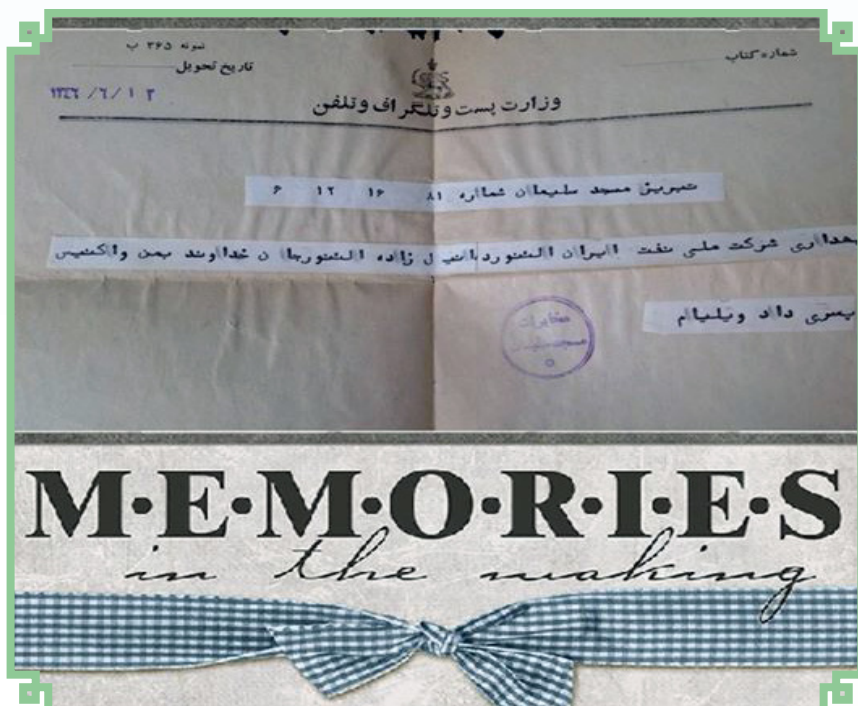 شماره کتاب
نمونه ۳۶۵ ب
تاریخ تحویل
۱۳۴۶ / ۶ / ۱۲
وزارت پست و تلگراف و تلفن
تبریز مسجد سلیمان شماره ۸۱ ۱۶ ۱۲ ۶
بهداری شرکت ملی نفت ایران النور دانیل زاده النورجان خداوند بمن واگنیس
پسری داد ویلیام
مخابرات
مسجد سلیمان
M·E·M·O·R·I·E·S
in the making